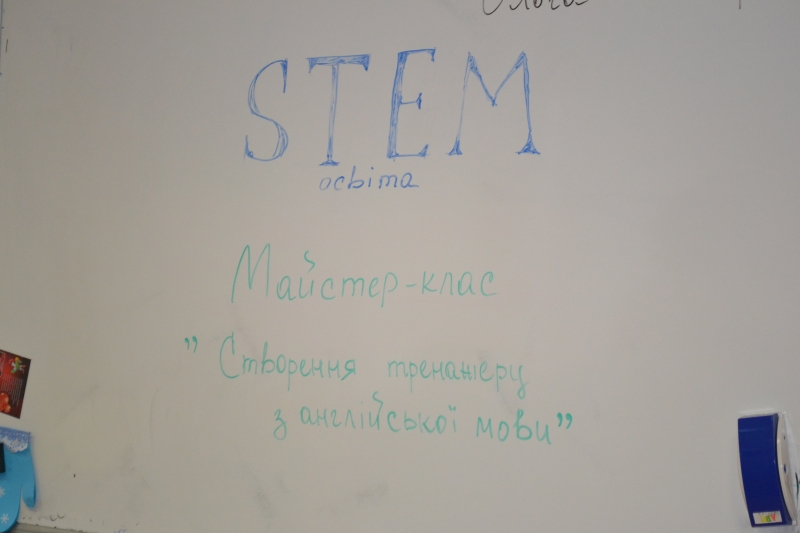 STEM
освіта
Майстер-клас
" Створення тренажеру
з англійської мови"